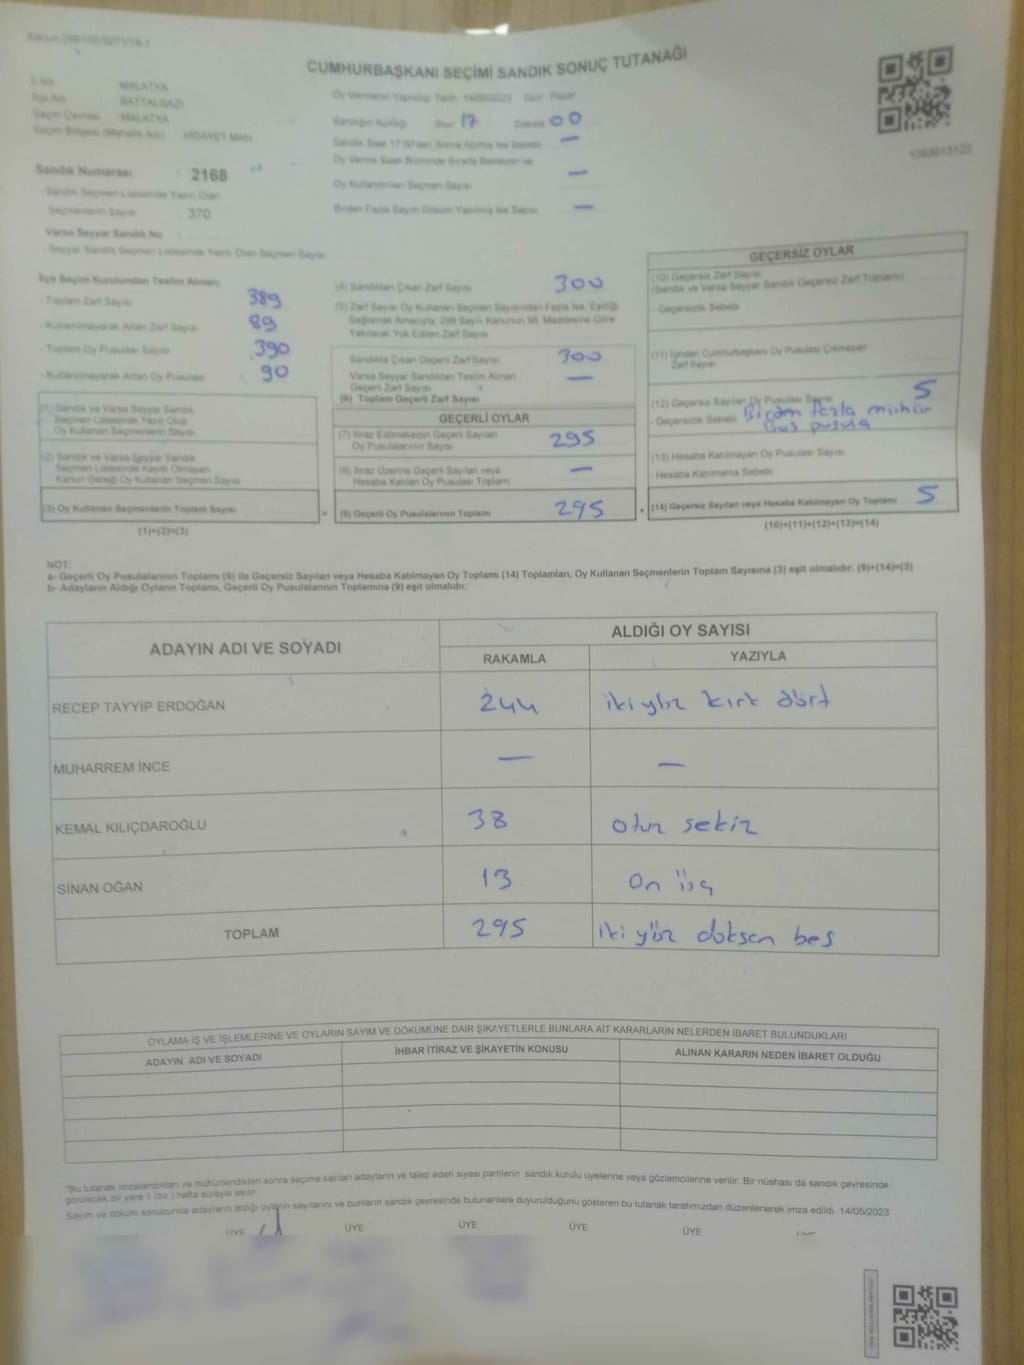 CUMHURBAŞKANI SEÇİMİ SANDIK SONUÇ TUTANAĞI
İl Adı : MALATYA
İlçe Adı : BATTALGAZİ
Seçim Çevresi : MALATYA
Seçim Bölgesi (Mahalle Adı) : HİDAYET MAH.
Sandık Numarası : 2168
Sandık Seçmen Listesinde Yazılı Olan
Seçmenlerin Sayısı : 370
Varsa Seyyar Sandık No
- Seyyar Sandık Seçmen Listesinde Yazılı Olan Seçmen Sayısı
Oy Vermenin Yapıldığı Tarih : 14/05/2023 Gün : Pazar
Sandığın Açıldığı Saat 17 Dakika 00
Oy Kullandırılan Seçmen Sayısı —
Birden Fazla Sayım Döküm Yapılmış İse Sayısı —
1093813122
İlçe Seçim Kurulundan Teslim Alınan;
- Toplam Zarf Sayısı : 389
- Kullanılmayarak Artan Zarf Sayısı : 89
- Toplam Oy Pusulası Sayısı : 390
- Kullanılmayarak Artan Oy Pusulası : 90
(1) Sandık ve Varsa Seyyar Sandık
Seçmen Listesinde Yazılı Olup
Oy Kullanan Seçmenlerin Sayısı
(2) Sandık ve Varsa Seyyar Sandık
Seçmen Listesinde Kayıtlı Olmayan
Kanun Gereği Oy Kullanan Seçmen Sayısı
(3) Oy Kullanan Seçmenlerin Toplam Sayısı
(1)+(2)=(3)
(4) Sandıktan Çıkan Zarf Sayısı 300
(5) Zarf Sayısı Oy Kullanan Seçmen Sayısından Fazla İse, Eşitliği
Sağlamak Amacıyla, 298 Sayılı Kanunun 98. Maddesine Göre
Yakılarak Yok Edilen Zarf Sayısı
Sandıkta Çıkan Geçerli Zarf Sayısı 300
Varsa Seyyar Sandıktan Teslim Alınan
Geçerli Zarf Sayısı —
(6) Toplam Geçerli Zarf Sayısı
GEÇERLİ OYLAR
(7) İtiraz Edilmeksizin Geçerli Sayılan
Oy Pusulalarının Sayısı 295
(8) İtiraz Üzerine Geçerli Sayılan veya
Hesaba Katılan Oy Pusulası Toplamı —
= (9) Geçerli Oy Pusulalarının Toplamı 295
GEÇERSİZ OYLAR
(10) Geçersiz Zarf Sayısı
(Sandık ve Varsa Seyyar Sandık Geçersiz Zarf Toplamı)
- Geçersizlik Sebebi
(11) İçinden Cumhurbaşkanı Oy Pusulası Çıkmayan
Zarf Sayısı
(12) Geçersiz Sayılan Oy Pusulası Sayısı 5
- Geçersizlik Sebebi Birden fazla mühür
Boş pusula
(13) Hesaba Katılmayan Oy Pusulası Sayısı
- Hesaba Katılmama Sebebi
+ (14) Geçersiz Sayılan veya Hesaba Katılmayan Oy Toplamı 5
(10)+(11)+(12)+(13)=(14)
NOT:
a- Geçerli Oy Pusulalarının Toplamı (9) ile Geçersiz Sayılan veya Hesaba Katılmayan Oy Toplamı (14) Toplamları, Oy Kullanan Seçmenlerin Toplam Sayısına (3) eşit olmalıdır. (9)+(14)=(3)
b- Adayların Aldığı Oyların Toplamı, Geçerli Oy Pusulalarının Toplamına (9) eşit olmalıdır.
ADAYIN ADI VE SOYADI ALDIĞI OY SAYISI
RAKAMLA YAZIYLA
RECEP TAYYİP ERDOĞAN 244 iki yüz kırk dört
MUHARREM İNCE — —
KEMAL KILIÇDAROĞLU 38 otuz sekiz
SİNAN OĞAN 13 on üç
TOPLAM 295 iki yüz doksan beş
OYLAMA İŞ VE İŞLEMLERİNE VE OYLARIN SAYIM VE DÖKÜMÜNE DAİR ŞİKAYETLERLE BUNLARA AİT KARARLARIN NELERDEN İBARET BULUNDUKLARI
ADAYIN ADI VE SOYADI İHBAR İTİRAZ VE ŞİKAYETİN KONUSU ALINAN KARARIN NEDEN İBARET OLDUĞU
"Bu tutanak imzalandıktan ve mühürlendikten sonra seçime katılan adayların ve talep eden siyasi partilerin sandık kurulu üyelerine veya gözlemcilerine verilir. Bir nüshası da sandık çevresinde
görülecek bir yere 1 (bir ) hafta süreyle asılır.
Sayım ve döküm sonucunda adayların aldığı oyların sayılarını ve bunların sandık çevresinde bulunanlara duyurulduğunu gösteren bu tutanak tarafımızdan düzenlenerek imza edildi. 14/05/2023
ÜYE ÜYE ÜYE ÜYE ÜYE